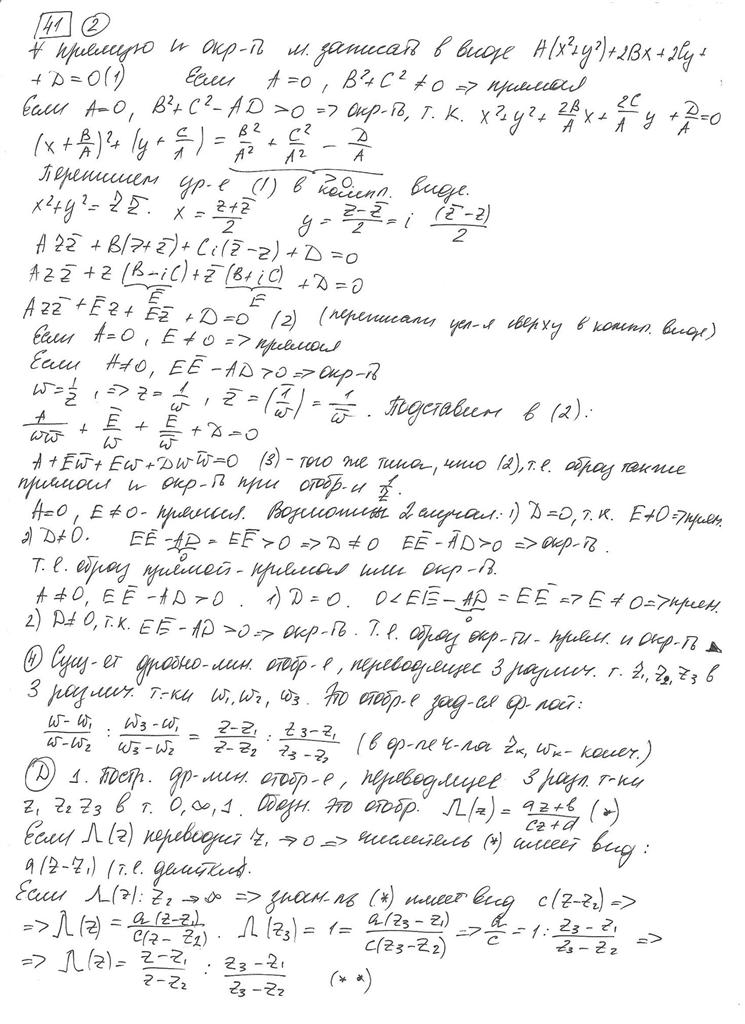 41 ②
∀ прямую и окр-ть м. записать в виде A(x²+y²)+2Bx+2Cy+
+D=0(1) Если A=0, B²+C²≠0 => прямая
Если A=0, B²+C²-AD>0 => окр-ть, т.к. x²+y²+\frac{2B}{A}x+\frac{2C}{A}y+\frac{D}{A}=0
(x+\frac{B}{A})²+(y+\frac{C}{A})=\frac{B²}{A²}+\frac{C²}{A²}-\frac{D}{A}
>0
Перепишем ур-е (1) в компл. виде.
x²+y²=z\bar{z}. x=\frac{z+\bar{z}}{2} y=\frac{z-\bar{z}}{2}=i\frac{(\bar{z}-z)}{2}
Az\bar{z}+B(z+\bar{z})+Ci(\bar{z}-z)+D=0
Az\bar{z}+z(B-iC)+\bar{z}(B+iC)+D=0
\bar{E} E
Az\bar{z}+\bar{E}z+E\bar{z}+D=0 (2) (переписали усл-я сверху в компл. виде)
Если A=0, E≠0 => прямая
Если A≠0, E\bar{E}-AD>0 => окр-ть
w=\frac{1}{z}, => z=\frac{1}{w}, \bar{z}=(\frac{\bar{1}}{w})=\frac{1}{\bar{w}}. Подставим в (2):
\frac{A}{w\bar{w}}+\frac{\bar{E}}{w}+\frac{E}{\bar{w}}+D=0
A+\bar{E}\bar{w}+Ew+Dw\bar{w}=0 (3) - того же типа, что (2), т.е. образ также
прямая и окр-ть при отобр-и \frac{1}{z}.
A=0, E≠0 - прямая. Возможны 2 случая: 1) D=0, т.к. E≠0 => прям.
2) D≠0. E\bar{E}-AD=E\bar{E}>0 => D≠0 E\bar{E}-AD>0 => окр-ть.
0
Т.е. образ прямой - прямая или окр-ть.
A≠0, E\bar{E}-AD>0. 1) D=0. 0<E\bar{E}-AD=E\bar{E} => E≠0 => прям.
0
2) D≠0, т.к. E\bar{E}-AD>0 => окр-ть. Т.е. образ окр-ти - прям. и окр-ть
④ Сущ-ет дробно-лин. отобр-е, переводящее 3 различ. т. z₁, z₂, z₃ в
3 различ. т-ки w₁, w₂, w₃. Это отобр-е зад-ся ф-лой:
\frac{w-w₁}{w-w₂}:\frac{w₃-w₁}{w₃-w₂}=\frac{z-z₁}{z-z₂}:\frac{z₃-z₁}{z₃-z₂} (в z_k, w_k - конеч.)
Ⓓ 1. Постр. др-лин. отобр-е, переводящее 3 разл. т-ки
z₁ z₂ z₃ в т. 0, ∞, 1. Обозн. это отобр. Λ(z)=\frac{az+b}{cz+d} (*)
Если Λ(z) переводит z₁→0 => числитель (*) имеет вид:
a(z-z₁) (т.е. делится).
Если Λ(z): z₂→∞ => знам-ль (*) имеет вид c(z-z₂) =>
=> Λ(z)=\frac{a(z-z₁)}{c(z-z₂)}. Λ(z₃)=1=\frac{a(z₃-z₁)}{c(z₃-z₂)} => \frac{a}{c}=1:\frac{z₃-z₁}{z₃-z₂} =>
=> Λ(z)=\frac{z-z₁}{z-z₂}:\frac{z₃-z₁}{z₃-z₂} (**)